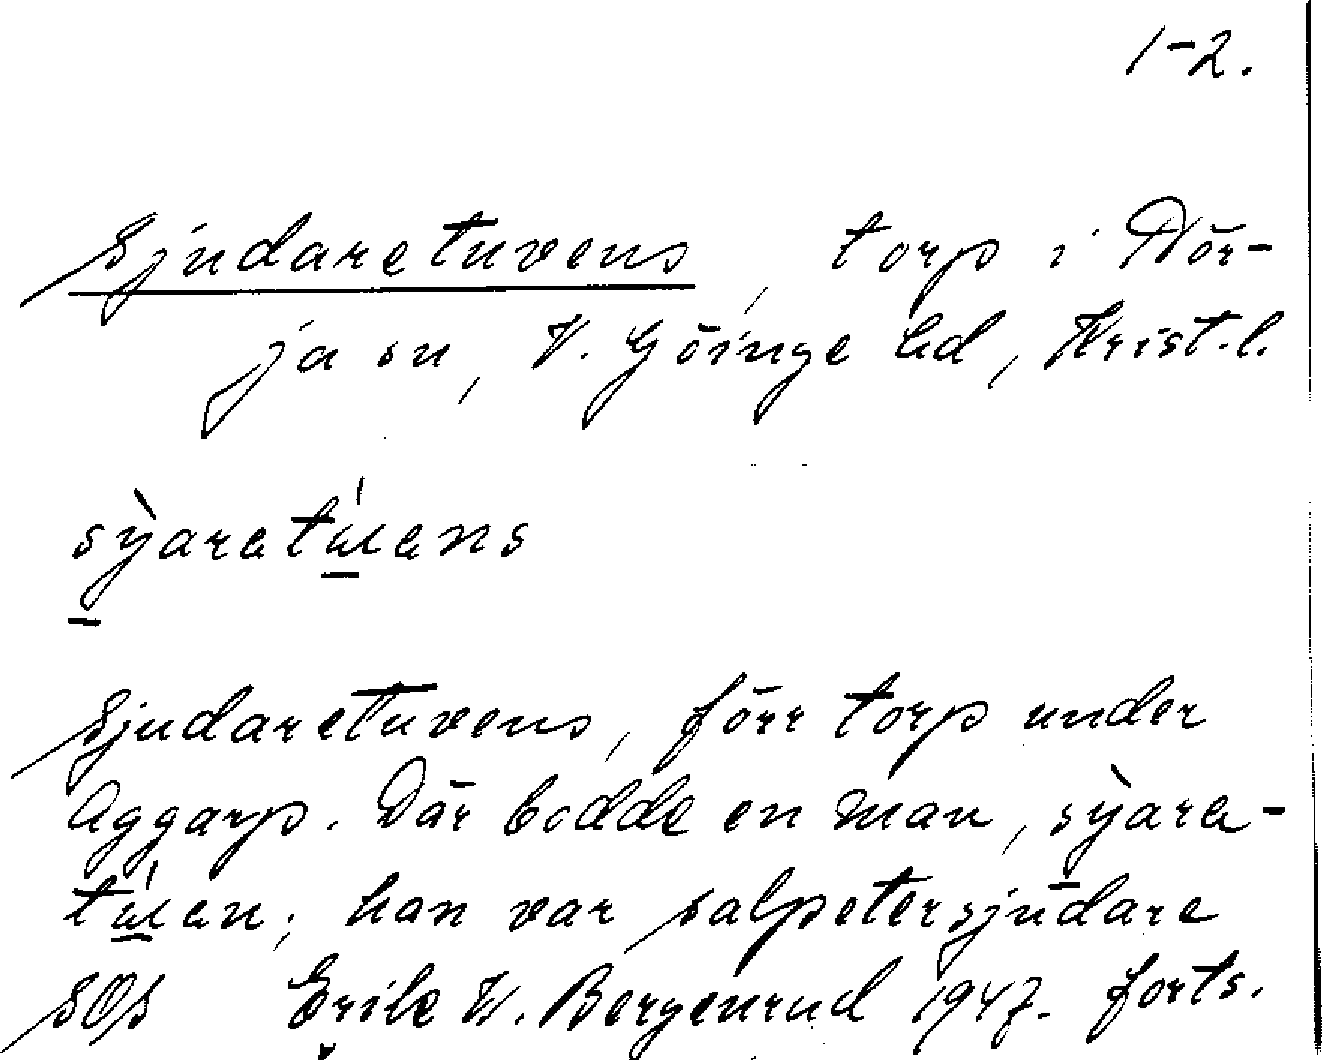 1-2.
Sjudaretuvens, torp i Nör-
ja sn, V. Göinge hd, Krist.l.
sỳaratúens
Sjudaretuvens, förr torp under
Aggarp. Där bodde en man, sỳara-
túan; han var salpetersjudare
SOS Erik W. Bergenrud 1947. forts.